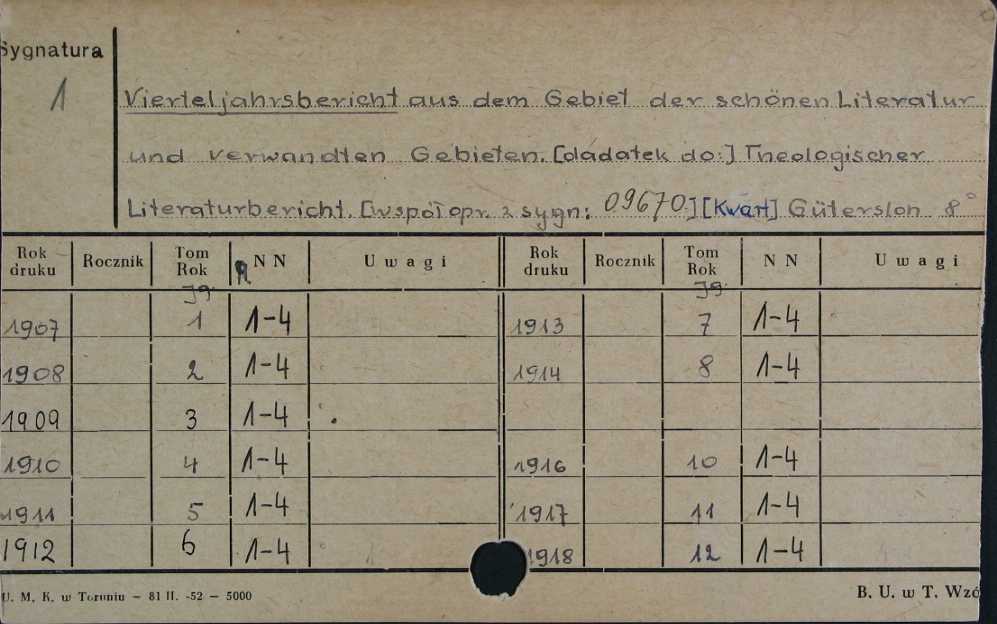 Sygnatura
1
Vierteljahrsbericht aus dem Gebiet der schönen Literatur
und verwandten Gebieten. [dadatek do:] Theologischer
Literaturbericht. [współopr. z sygn: 09670] [Kwart] Gütersloh 8°
Rok druku Rocznik Tom Rok NN Uwagi Rok druku Rocznik Tom Rok NN Uwagi
Jg. Jg.
1907 1 1-4 1913 7 1-4
1908 2 1-4 1914 8 1-4
1909 3 1-4
1910 4 1-4 1916 10 1-4
1911 5 1-4 1917 11 1-4
1912 6 1-4 1918 12 1-4
U. M. K. w Toruniu – 81 II. -52 – 5000 B. U. w T. Wzó